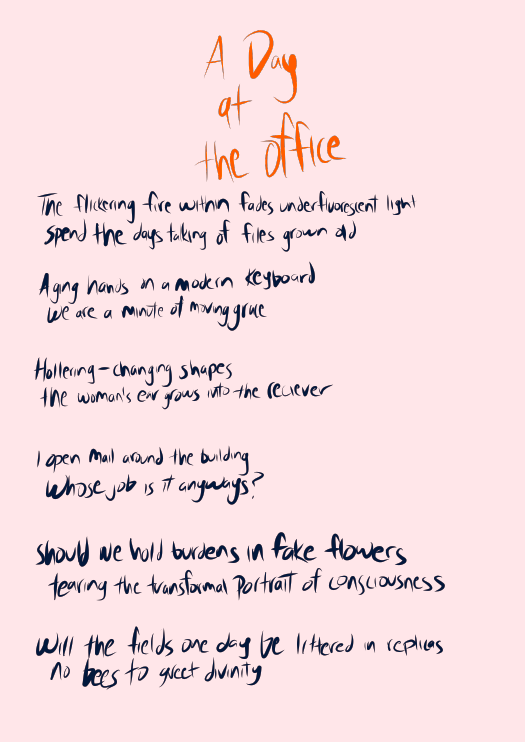 A Day
at
the office
The flickering fire within fades under fluorescent light
spend the days talking of files grown old
Aging hands on a modern keyboard
we are a minute of moving grace
Hollering-changing shapes
the woman's ear grows into the reciever
I open mail around the building
Whose job is it anyways?
should we hold burdens in fake flowers
tearing the transformal Portrait of consciousness
Will the fields one day be littered in replicas
no bees to greet divinity